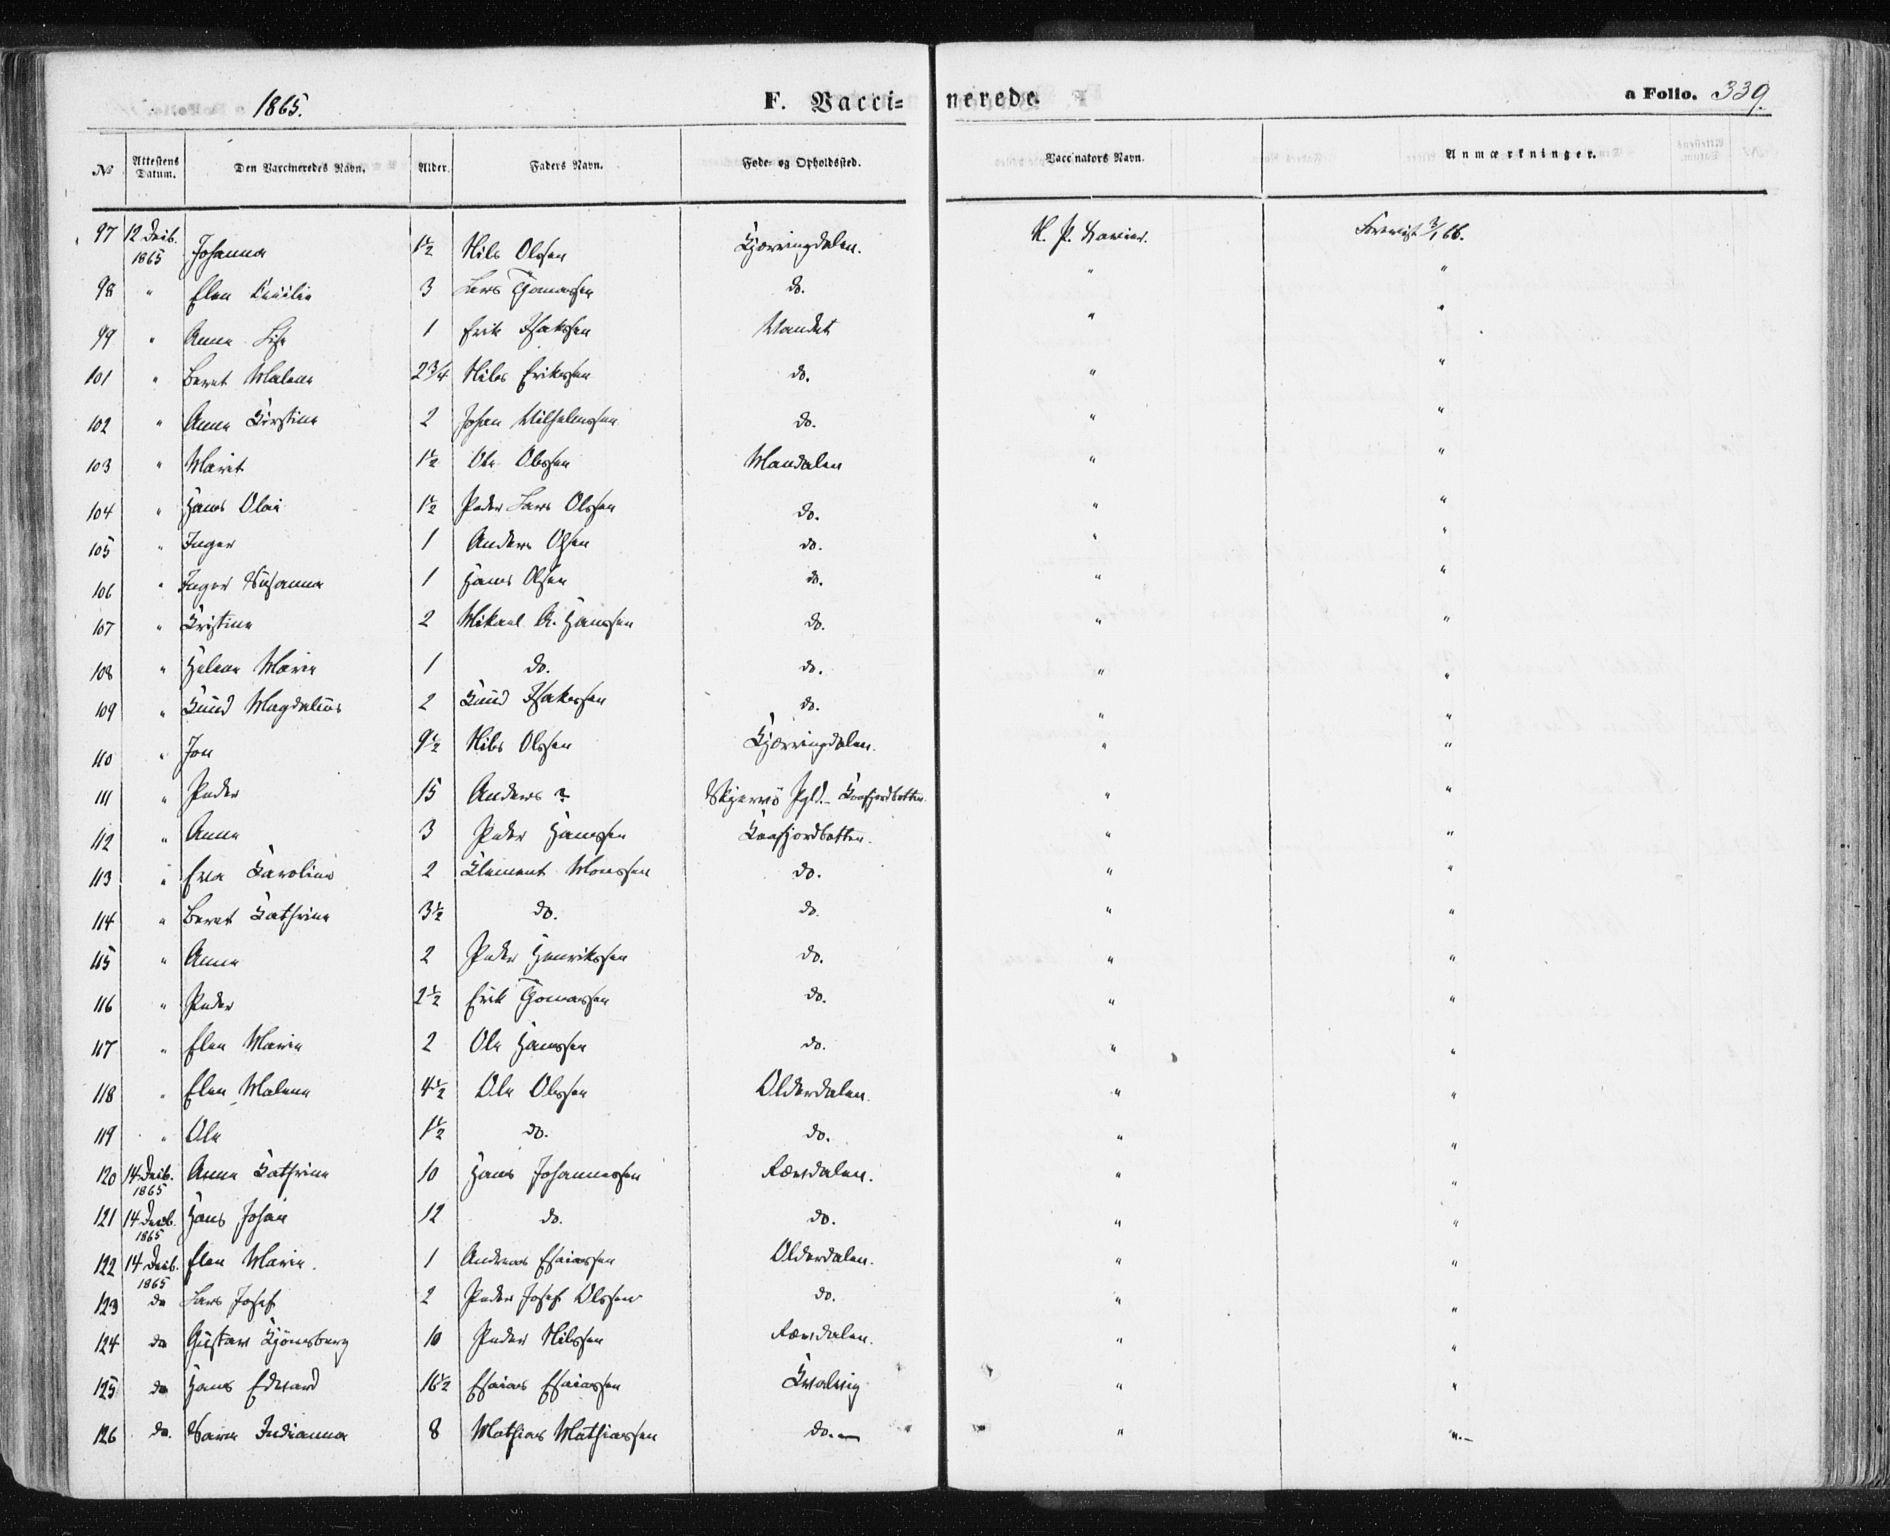 1865. F. Vaccinerede. a Folio. 339.
No Attestens Datum. Den Vaccineredes Navn. Alder. Faders Navn. Føde- og Opholdssted. Vaccinators Navn. Anmærkninger.
97 12 Decb. 1865 Johanna 1½ Nils Olsen Kjærringdalen. H. P. Forevist 66.
98 " Elen Cecilie 3 Lars Thomassen do. " "
99 " Anne Lise 1 Erik Isaksen " "
101 " Beret Malene 2¾ Nils Eriksen do. " "
102 " Anne Kirstine 2 Johan Wilhelmsen do. " "
103 " Marit 1½ Ole Olssen Mandalen " "
104 " Hans Olai 1½ Peder Lars Olssen do. " "
105 " Inger 1 Anders Olsen do. " "
106 " Inger Susanna 1 Hans Olsen do. " "
107 " Kristine 2 Mikael A. Hanssen do. " "
108 " Helene Marie 1 do. do. " "
109 " Knud Magdalius 2 Knud Isakssen do. " "
110 " Jon 9½ Nils Olssen Kjærringdalen. " "
111 " Peder 15 Anders ? Skjervö Pgld. - Kaafjordbotten. " "
112 " Anne 3 Peder Hanssen Kaafjordbotten. " "
113 " Eva Karoline 2 Klement Monssen do. " "
114 " Beret Kathrine 3½ do. do. " "
115 " Anne 2 Peder Henriksen do. " "
116 " Peder 2½ Erik Thomassen do. " "
117 " Elen Marie 2 Ole Hanssen do. " "
118 " Elen Malene 4½ Ole Olssen Olderdalen. " "
119 " Ole 1½ do. do. " "
120 14 Decb. 1865 Anne Kathrine 10 Hans Johannessen " "
121 14 Decb. 1865 Hans Johan 12 do. do. " "
122 14 Decb. 1865 Elen Marie. 1 Andreas Esaiassen Olderdalen. " "
123 do Lars Josef 2 Peder Josef Olssen do. " "
124 do Gustav Kjönsberg 10 Peder Nilssen " "
125 do Hans Edvard 16½ Esaias Esaiassen Kvalvig " "
126 do. Sara Indianna 8 Mathias Mathiassen do. — " ".—